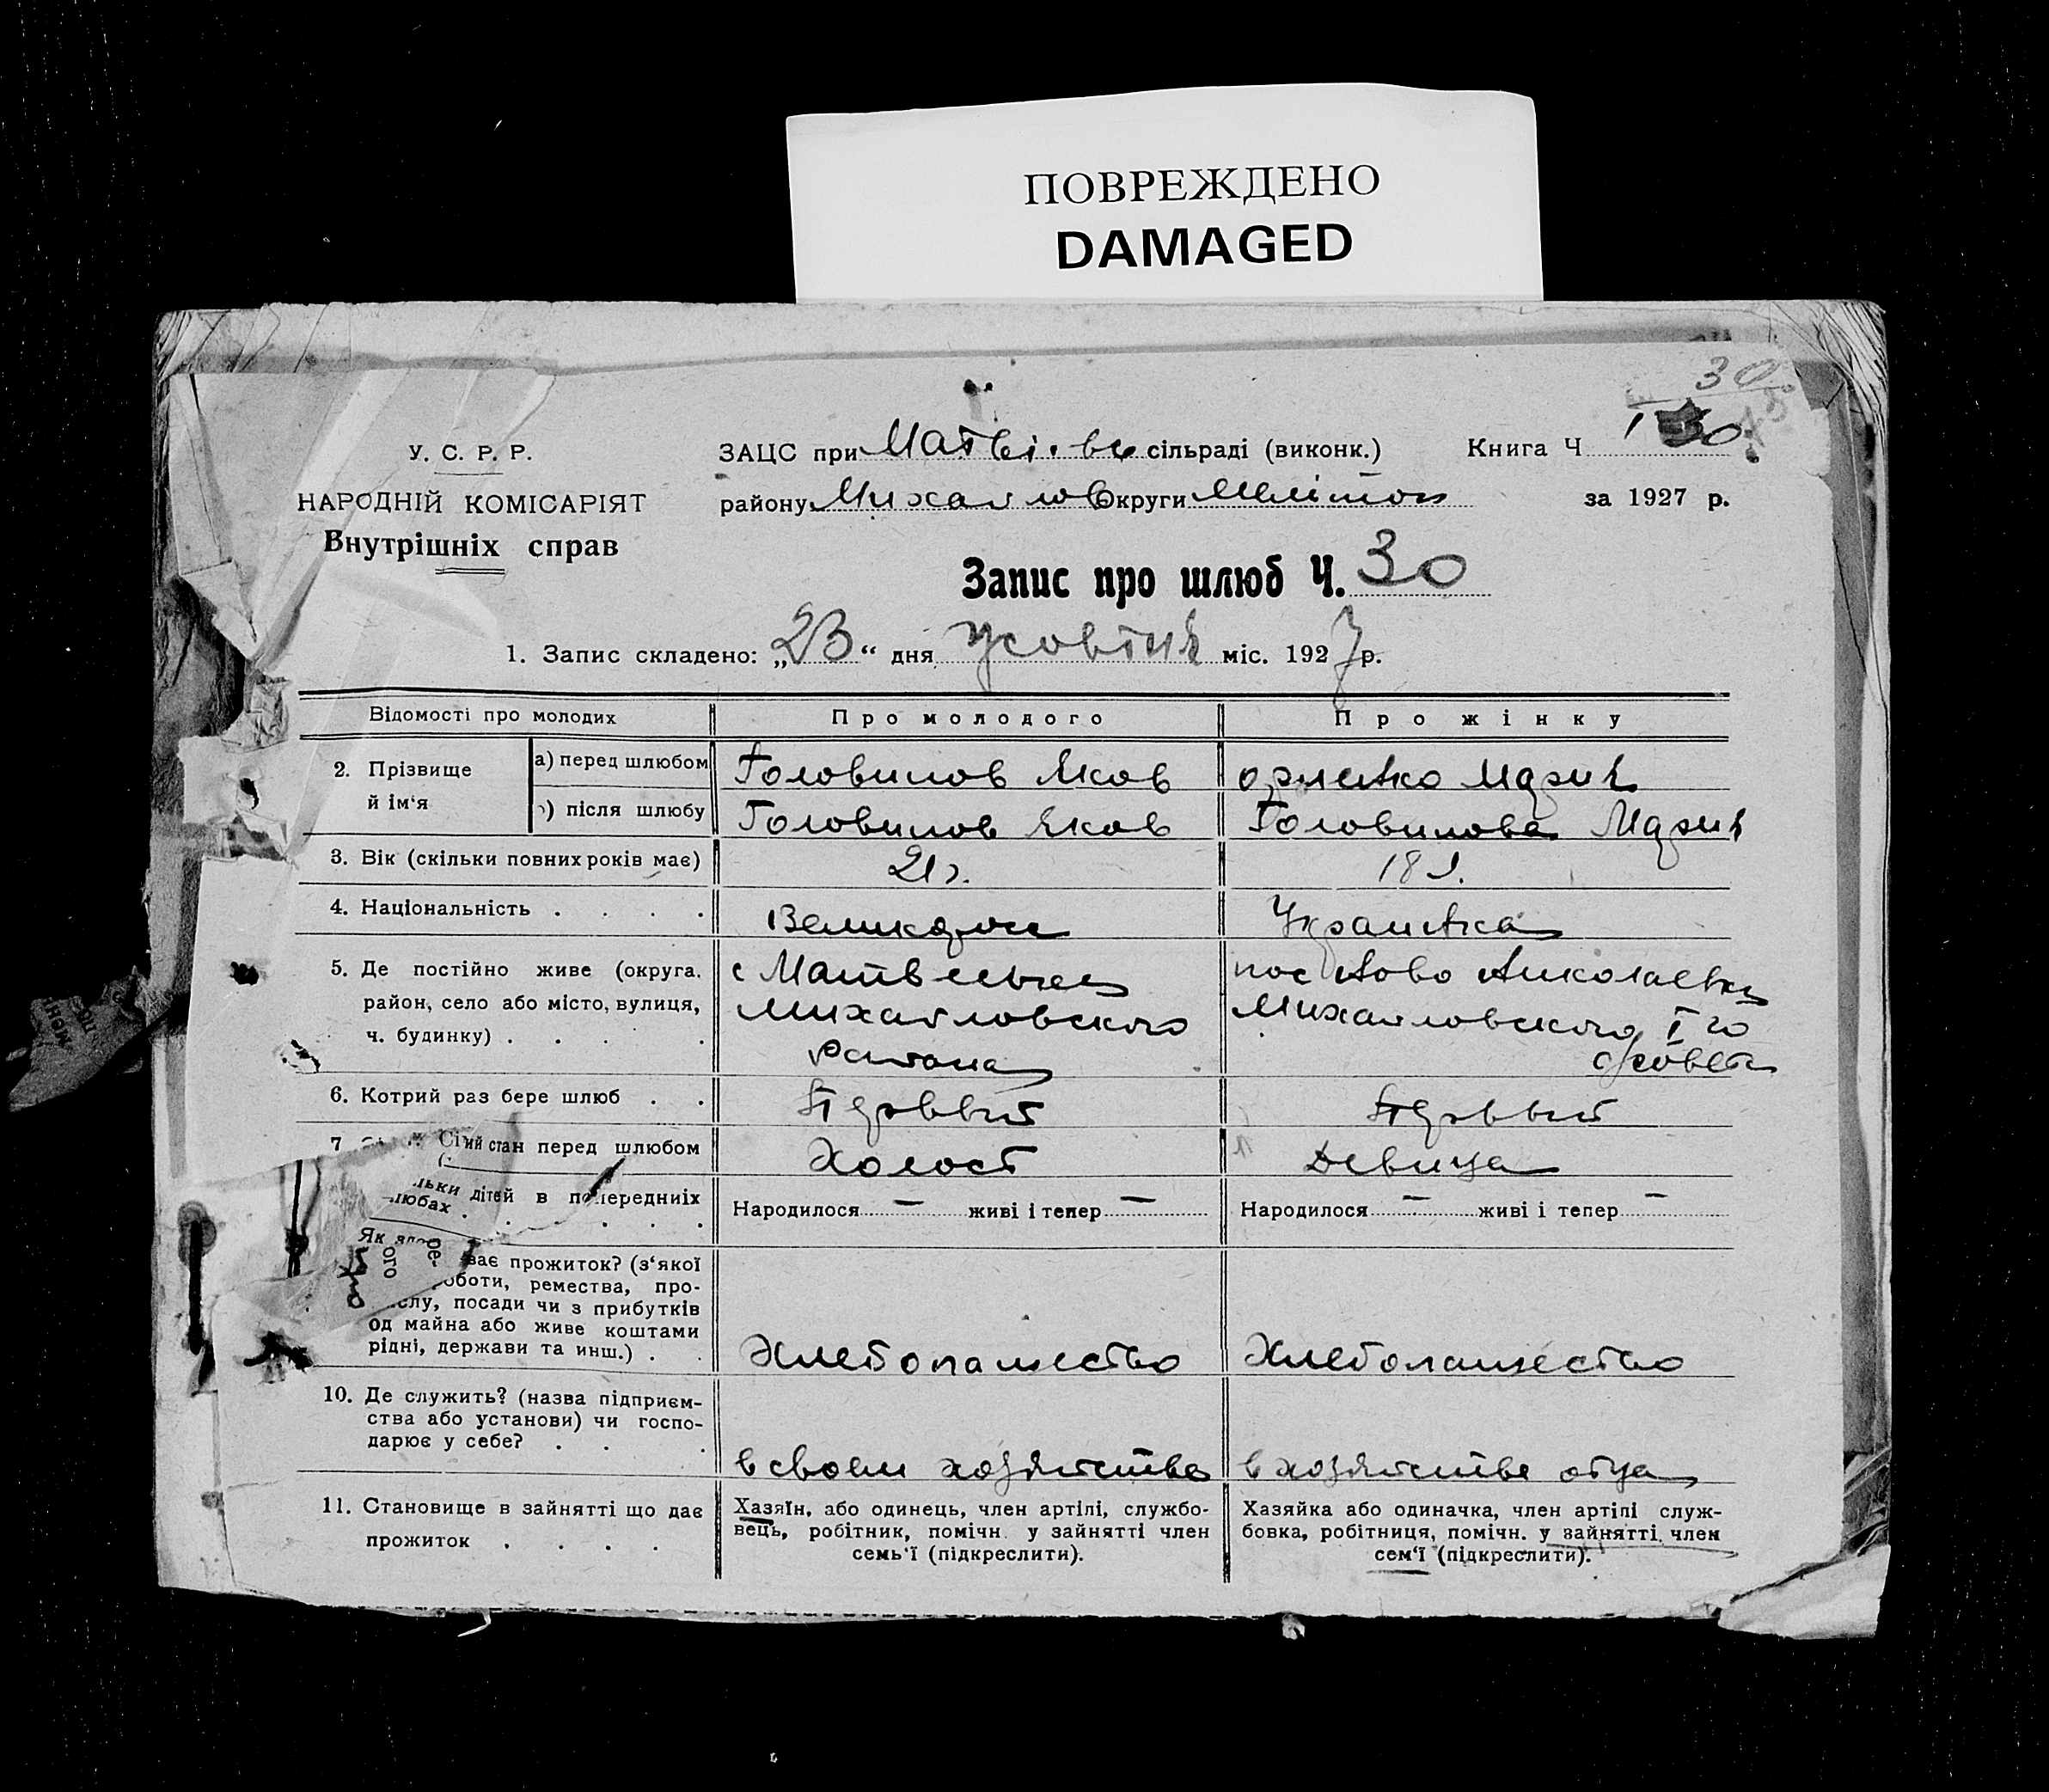 ПОВРЕЖДЕНО
DAMAGED
30
У. С. Р. Р.
НАРОДНІЙ КОМІСАРІЯТ
Внутрішніх справ
ЗАЦС при Матвіів сільраді (виконк.)
району Михайлов Округи Мелітоп
Книга Ч 1
за 1927 р.
Запис про шлюб Ч. 30
1. Запис складено: „23“ дня жовтня міс. 1927 р.
Відомості про молодих Про молодого Про жінку
2. Прізвище й ім‘я
а) перед шлюбом Головинов Яков Мария
) після шлюбу Головинов Яков Головинова Мария
3. Вік (скільки повних років має) 21 г. 18 л.
4. Національність Великорос Украинка
5. Де постійно живе (округа, район, село або місто, вулиця, ч. будинку)
с Матвеевка
Михайловского
района
пос Ново Николаевка
Михайловского I го
с/совета
6. Котрий раз бере шлюб Первый Первый
7 Сі ий стан перед шлюбом Холост Девица
льки дітей в попередніх
любах
Народилося — живі і тепер — Народилося — живі і тепер —
Як
ває прожиток? (з‘якої
оботи, ремества, про-
слу, посади чи з прибутків
од майна або живе коштами
рідні, держави та инш.)
Хлебопашество Хлебопашество
10. Де служить? (назва підприєм-
ства або установи) чи госпо-
дарює у себе?
в своем хозяйстве в хозяйстве отца
11. Становище в зайнятті що дає
прожиток
Хазяїн, або одинець, член артілі, службо-
вець, робітник, помічн. у зайнятті член
семь‘ї (підкреслити).
Хазяйка або одиначка, член артілі служ-
бовка, робітниця, помічн. у зайнятті член
сем‘ї (підкреслити).